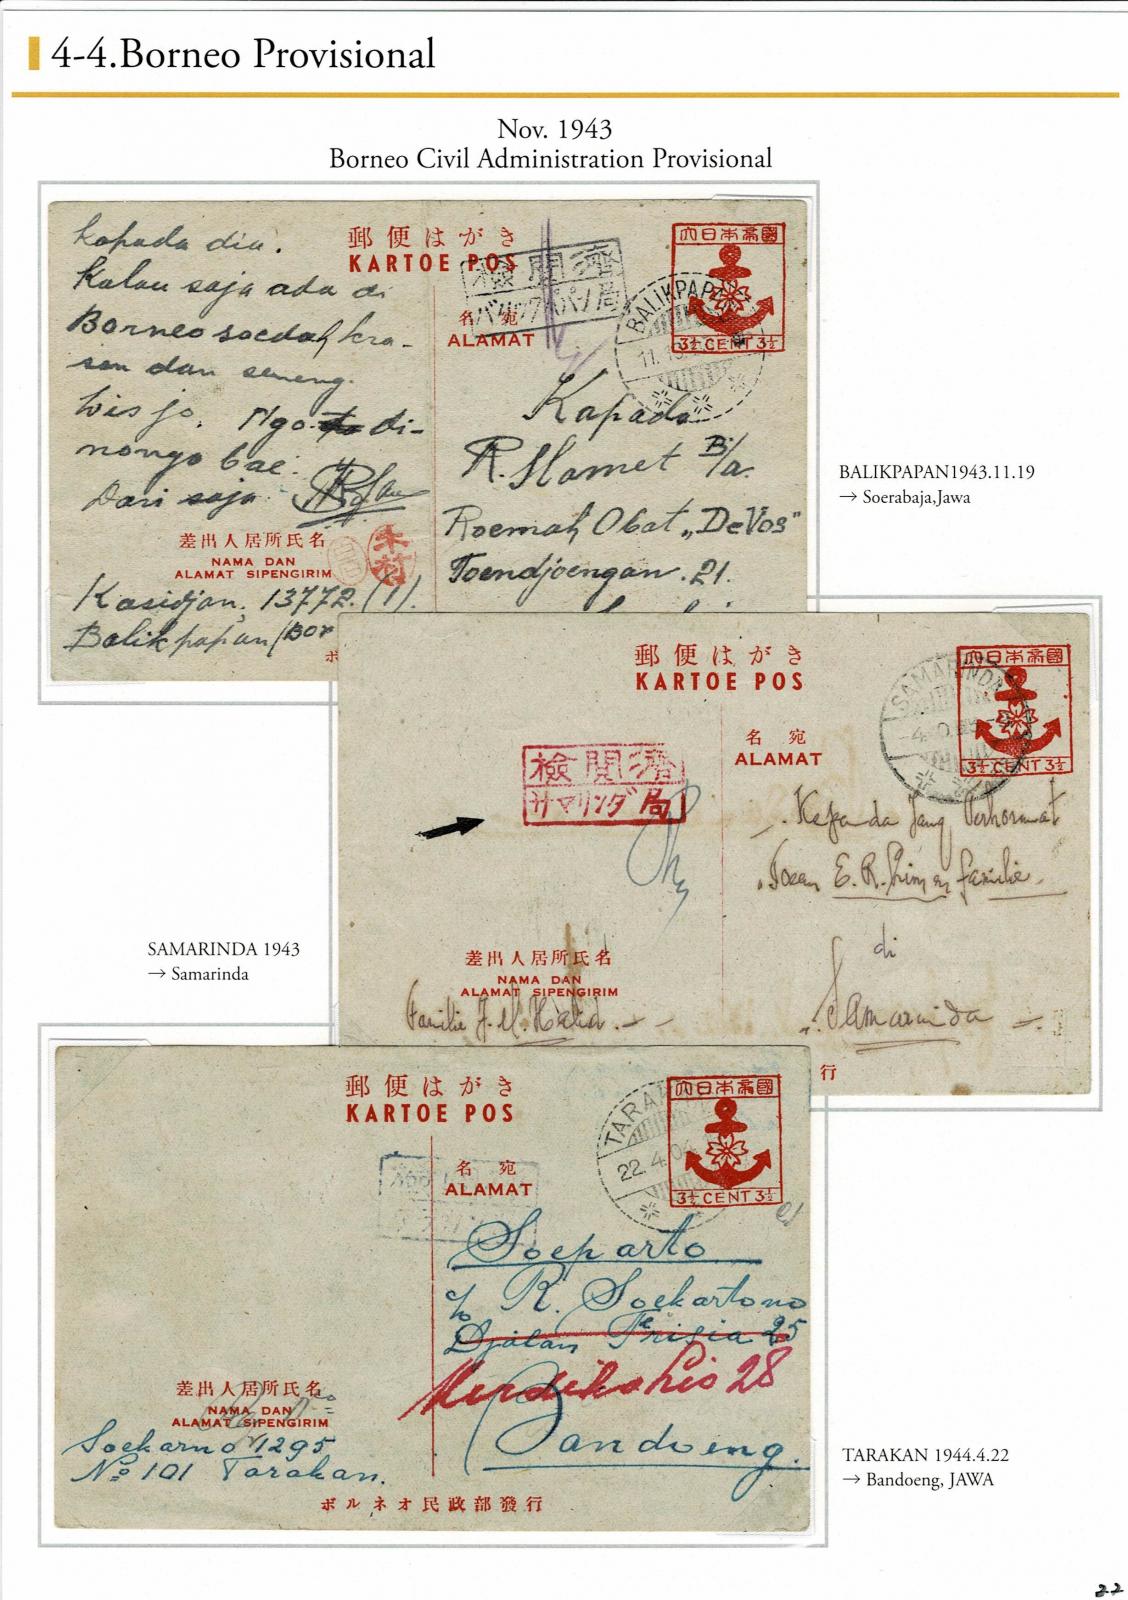 4-4.Borneo Provisional
Nov. 1943
Borneo Civil Administration Provisional
kapada dia.
Kalau saja ada di
Borneo soedah kra-
san dan seneng.
Wis jo. Ngo di-
nongo bae.
Dari saja
郵便はがき
KARTOE POS
検閲済
バリックパパン局
名宛
ALAMAT
大日本帝國
3½ CENT 3½
BALIKPAPAN
Kapada
R. Slamet B/a.
Roemah Obat „De Vos"
Toendjoengan. 21.
差出人居所氏名
NAMA DAN
ALAMAT SIPENGIRIM
木村
Kasidjan, 13772. (1).
Balikpapan/Bor
ボ
BALIKPAPAN1943.11.19
→ Soerabaja,Jawa
郵便はがき
KARTOE POS
検閲済
サマリンダ局
名宛
ALAMAT
大日本帝國
3½ CENT 3½
SAMARINDA
Kepada Jang Terhormat
familie
di
Samarinda
差出人居所氏名
NAMA DAN
ALAMAT SIPENGIRIM
Familie J. M. Halid
行
SAMARINDA 1943
→ Samarinda
郵便はがき
KARTOE POS
名宛
ALAMAT
大日本帝國
3½ CENT 3½
TARA
22.4.04
Soeparto
c/o R. Soekartono
Djalan Frisia 25
Merdika Lio 28
Bandoeng.
差出人居所氏名
NAMA DAN
ALAMAT SIPENGIRIM
Soekarno 1295
No 101 Tarakan.
ボルネオ民政部發行
TARAKAN 1944.4.22
→ Bandoeng, JAWA
22